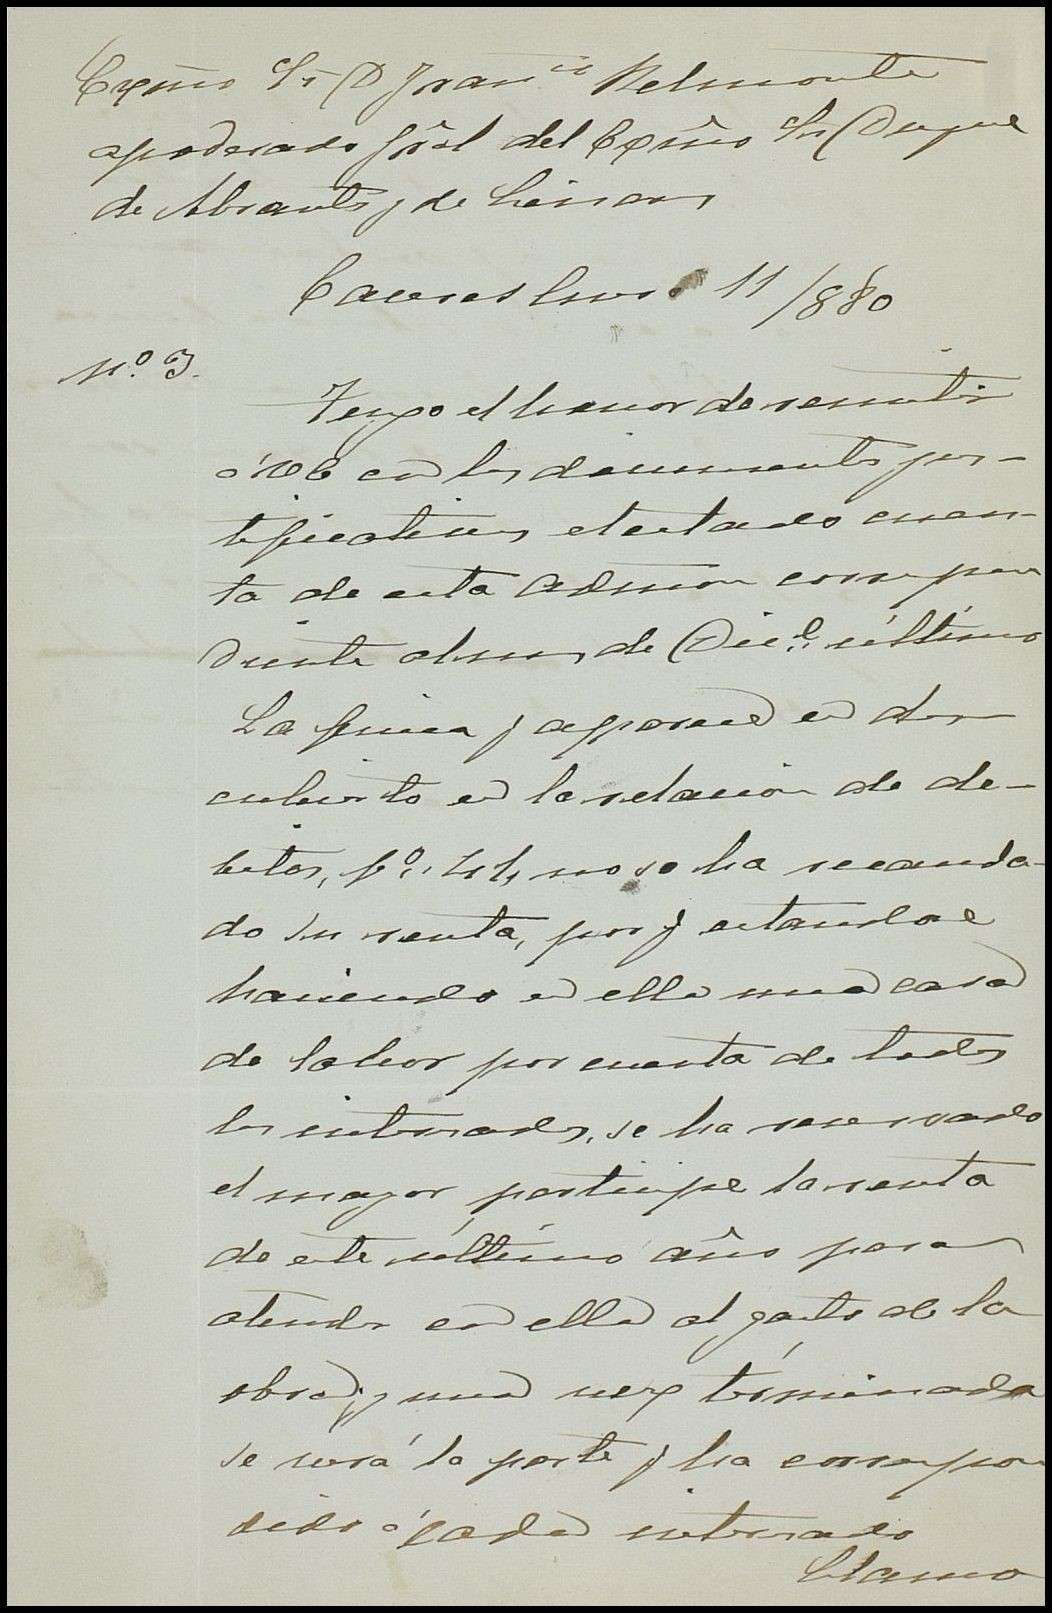 Excmo Sr D Franco Belmonte
apoderado gral del Excmo Sr Duque
de Abrantes y de Linares
Caceres Enero 11/880
No. 3.
Tengo el honor de remitir
á VE con los documentos jus-
tificativos el estado cuen-
ta de esta Admon correspon
diente al mes de Dice. último
La finca q aparece en des-
cubierto en la relacion de de-
bitos, fo., no se ha recauda-
do su renta, por q estandose
haciendo en ella una casa
de labor por cuenta de todos
los interesados, se ha reservado
el mayor participe la renta
de este último año para
atender con ella al gasto de la
obra, y una vez terminada
se verá la parte q ha correspon
dido á cada interesado
Llamo